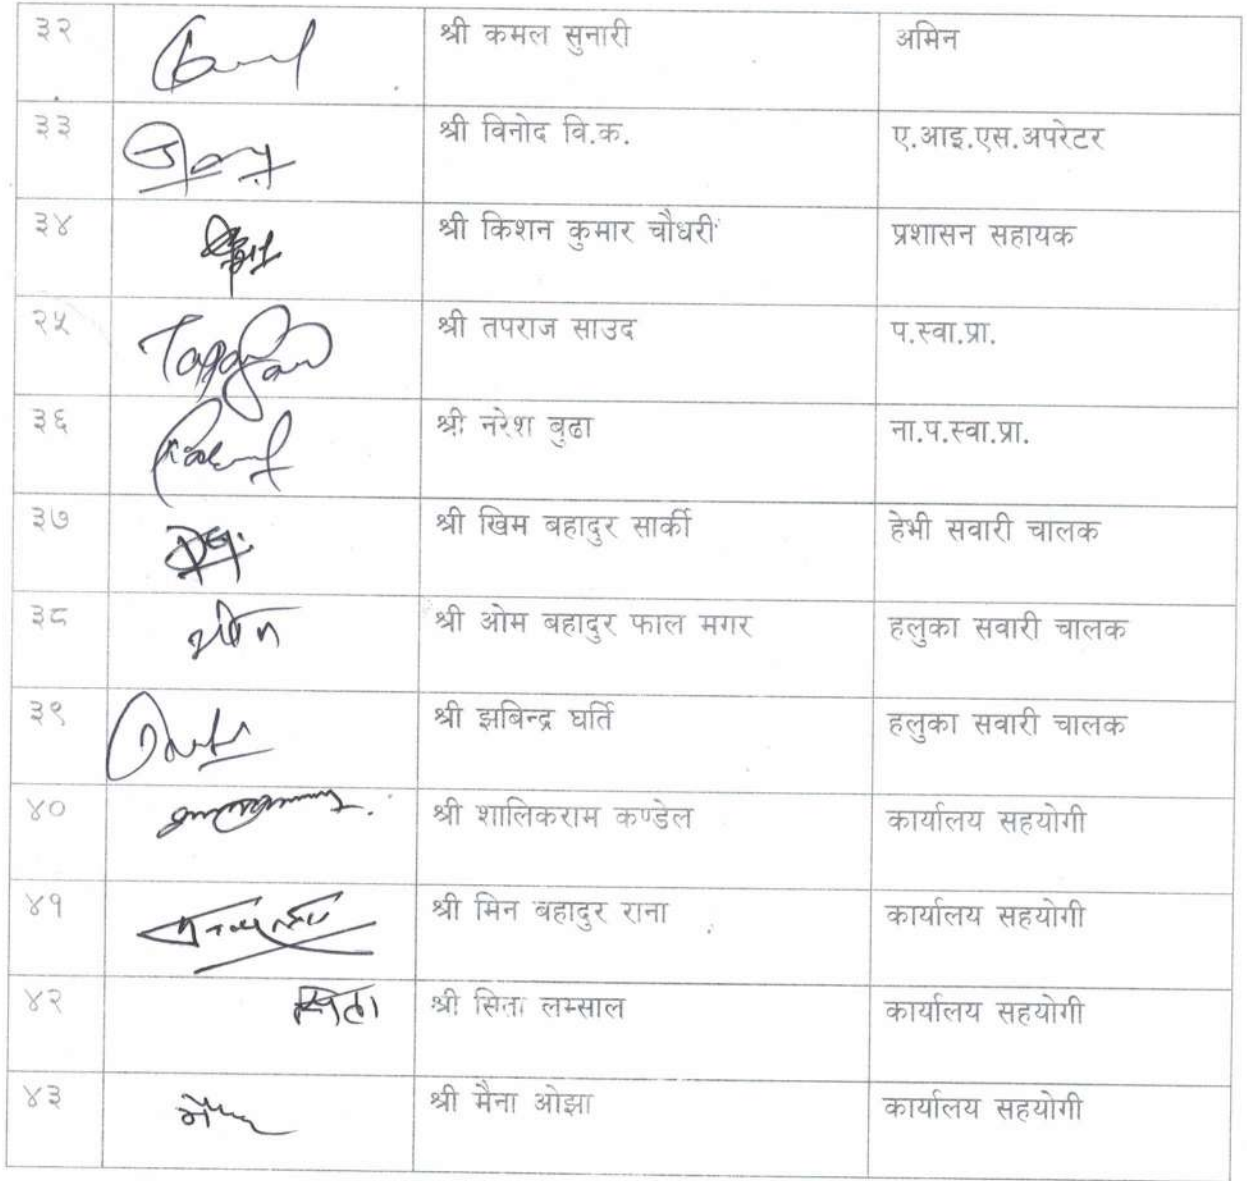 ३२ श्री कमल सुनारी अमिन
३३ श्री विनोद वि.क. ए.आइ.एस.अपरेटर
३४ श्री किशन कुमार चौधरी प्रशासन सहायक
२५ श्री तपराज साउद प.स्वा.प्रा.
३६ श्री नरेश बुढा ना.प.स्वा.प्रा.
३७ श्री खिम बहादुर सार्की हेभी सवारी चालक
३८ श्री ओम बहादुर फाल मगर हलुका सवारी चालक
३९ श्री झबिन्द्र घर्ति हलुका सवारी चालक
४० श्री शालिकराम कण्डेल कार्यालय सहयोगी
४१ श्री मिन बहादुर राना कार्यालय सहयोगी
४२ सिता श्री सिता लम्साल कार्यालय सहयोगी
४३ श्री मैना ओझा कार्यालय सहयोगी